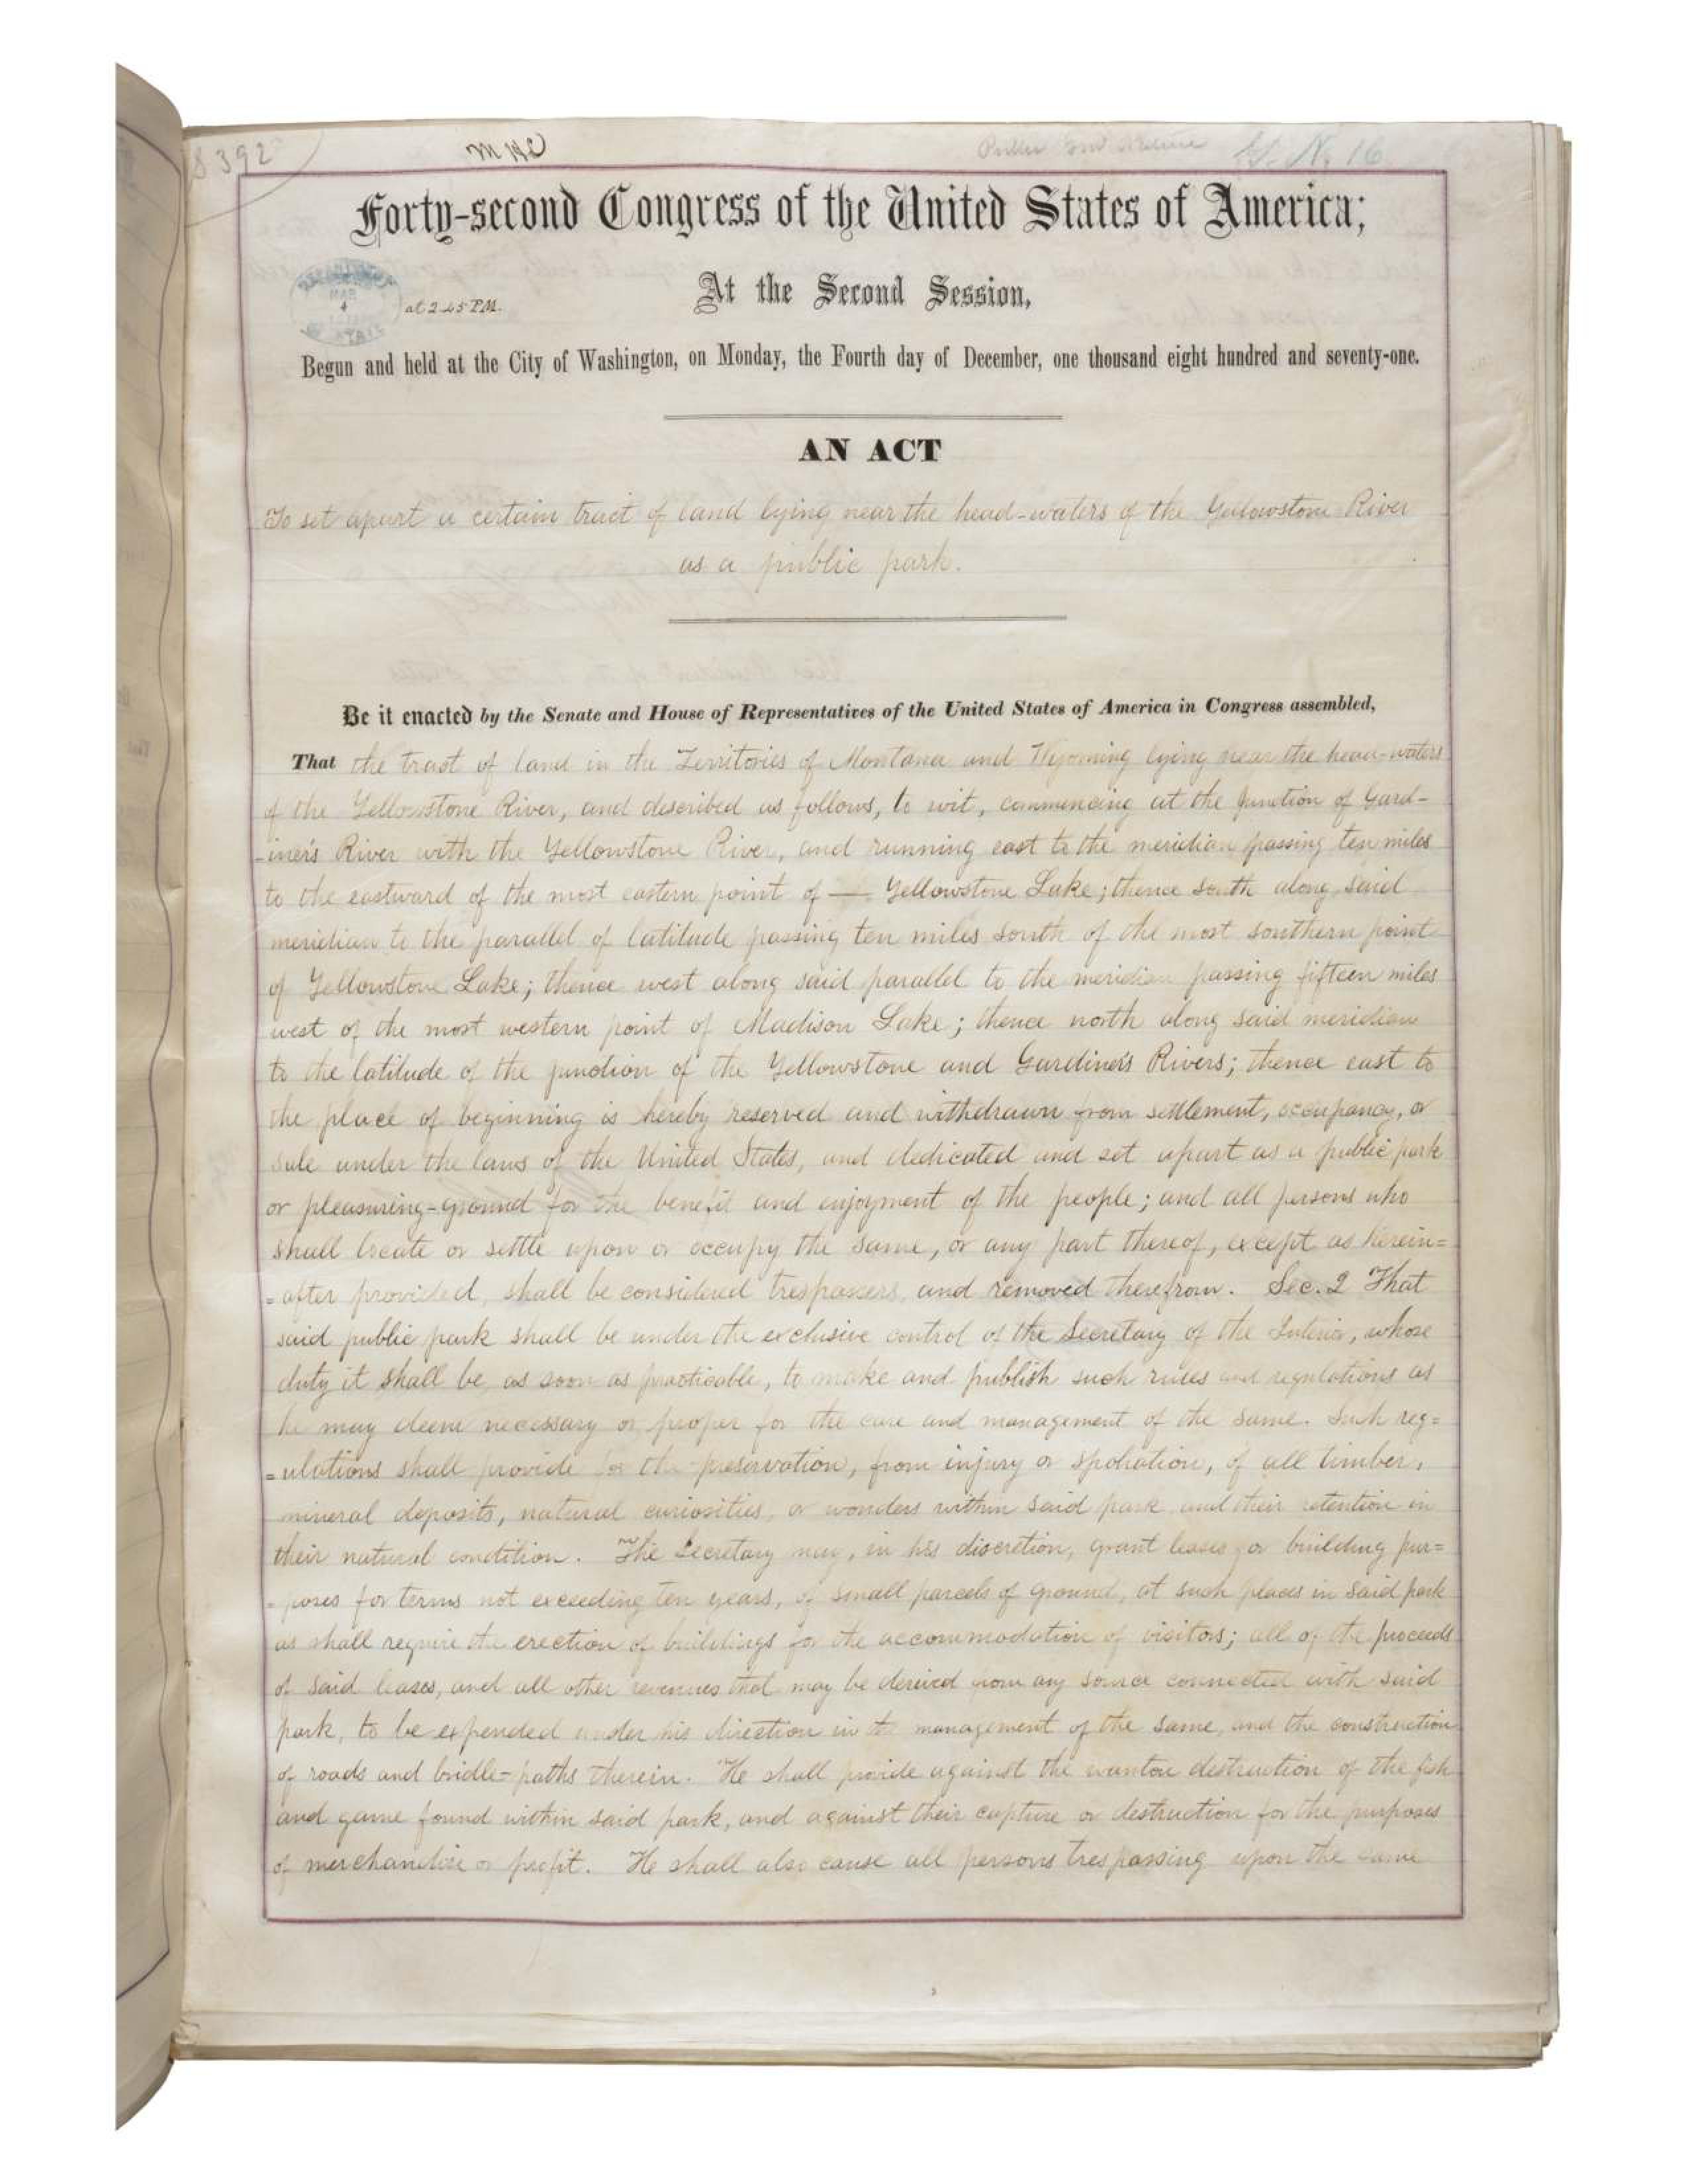 8392
at 2.45 P.M.
Forty-second Congress of the United States of America;
At the Second Session,
Begun and held at the City of Washington, on Monday, the Fourth day of December, one thousand eight hundred and seventy-one.
AN ACT
To set apart a certain tract of land lying near the head-waters of the Yellowstone River
as a public park.
Be it enacted by the Senate and House of Representatives of the United States of America in Congress assembled,
That the tract of land in the Territories of Montana and Wyoming lying near the head-waters
of the Yellowstone River, and described as follows, to wit, commencing at the junction of Gard-
-iner's River with the Yellowstone River, and running east to the meridian passing ten miles
to the eastward of the most eastern point of — Yellowstone Lake; thence south along said
meridian to the parallel of latitude passing ten miles south of the most southern point
of Yellowstone Lake; thence west along said parallel to the meridian passing fifteen miles
west of the most western point of Madison Lake; thence north along said meridian
to the latitude of the junction of the Yellowstone and Gardiner's Rivers; thence east to
the place of beginning is hereby reserved and withdrawn from settlement, occupancy, or
sale under the laws of the United States, and dedicated and set apart as a public park
or pleasuring-ground for the benefit and enjoyment of the people; and all persons who
shall locate or settle upon or occupy the same, or any part thereof, except as herein=
=after provided, shall be considered trespassers, and removed therefrom. Sec. 2 That
said public park shall be under the exclusive control of the Secretary of the Interior, whose
duty it shall be, as soon as practicable, to make and publish such rules and regulations as
he may deem necessary or proper for the care and management of the same. Such reg=
=ulations shall provide for the preservation, from injury or spoliation, of all timber,
mineral deposits, natural curiosities, or wonders within said park, and their retention in
their natural condition. The Secretary may, in his discretion, grant leases for building pur=
=poses for terms not exceeding ten years, of small parcels of ground, at such places in said park
as shall require the erection of buildings for the accommodation of visitors; all of the proceeds
of said leases, and all other revenues that may be derived from any source connected with said
park, to be expended under his direction in the management of the same, and the construction
of roads and bridle=paths therein. He shall provide against the wanton destruction of the fish
and game found within said park, and against their capture or destruction for the purposes
of merchandise or profit. He shall also cause all persons trespassing upon the same